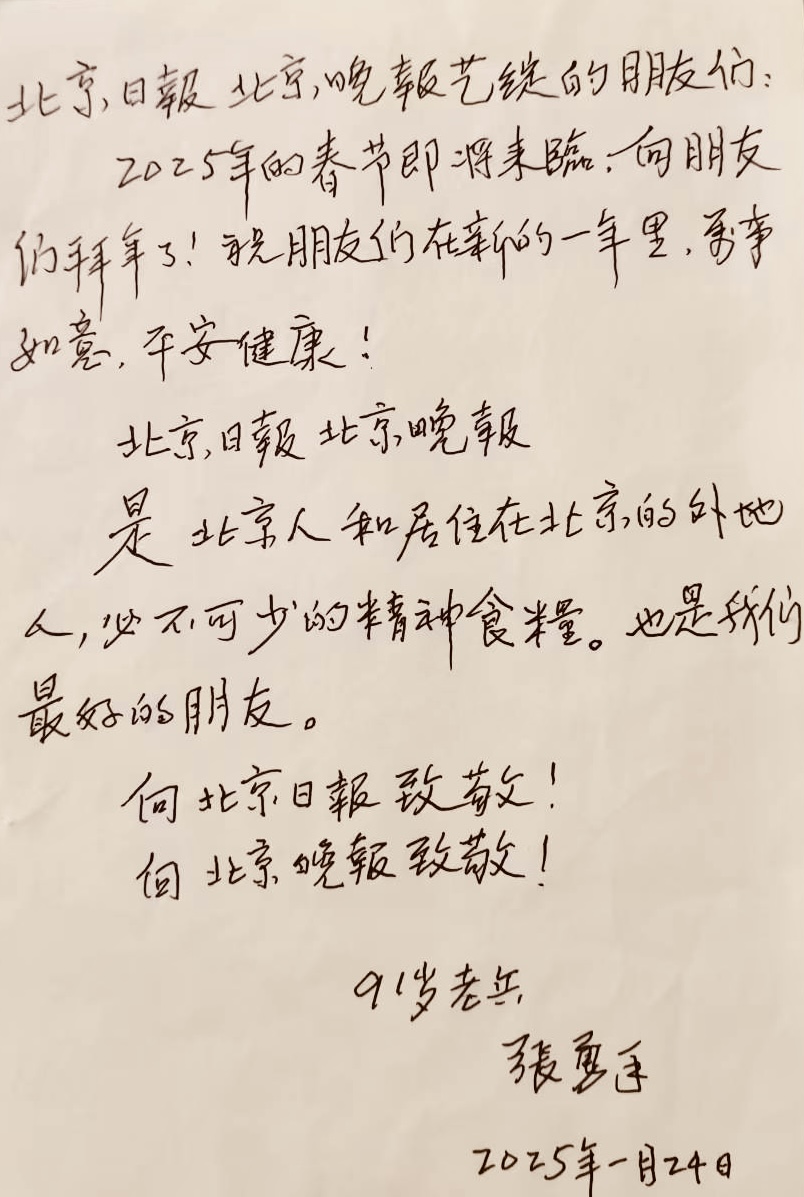 北京日報北京晚報艺绽的朋友们:
2025年的春节即将来臨,向朋友
们拜年了!祝朋友们在新的一年里,万事
如意,平安健康!
北京日報北京晚報
是北京人和居住在北京的外地
人,必不可少的精神食糧。也是我们
最好的朋友。
向北京日報致敬!
向北京晚報致敬!
91岁老兵
張勇手
2025年一月24日